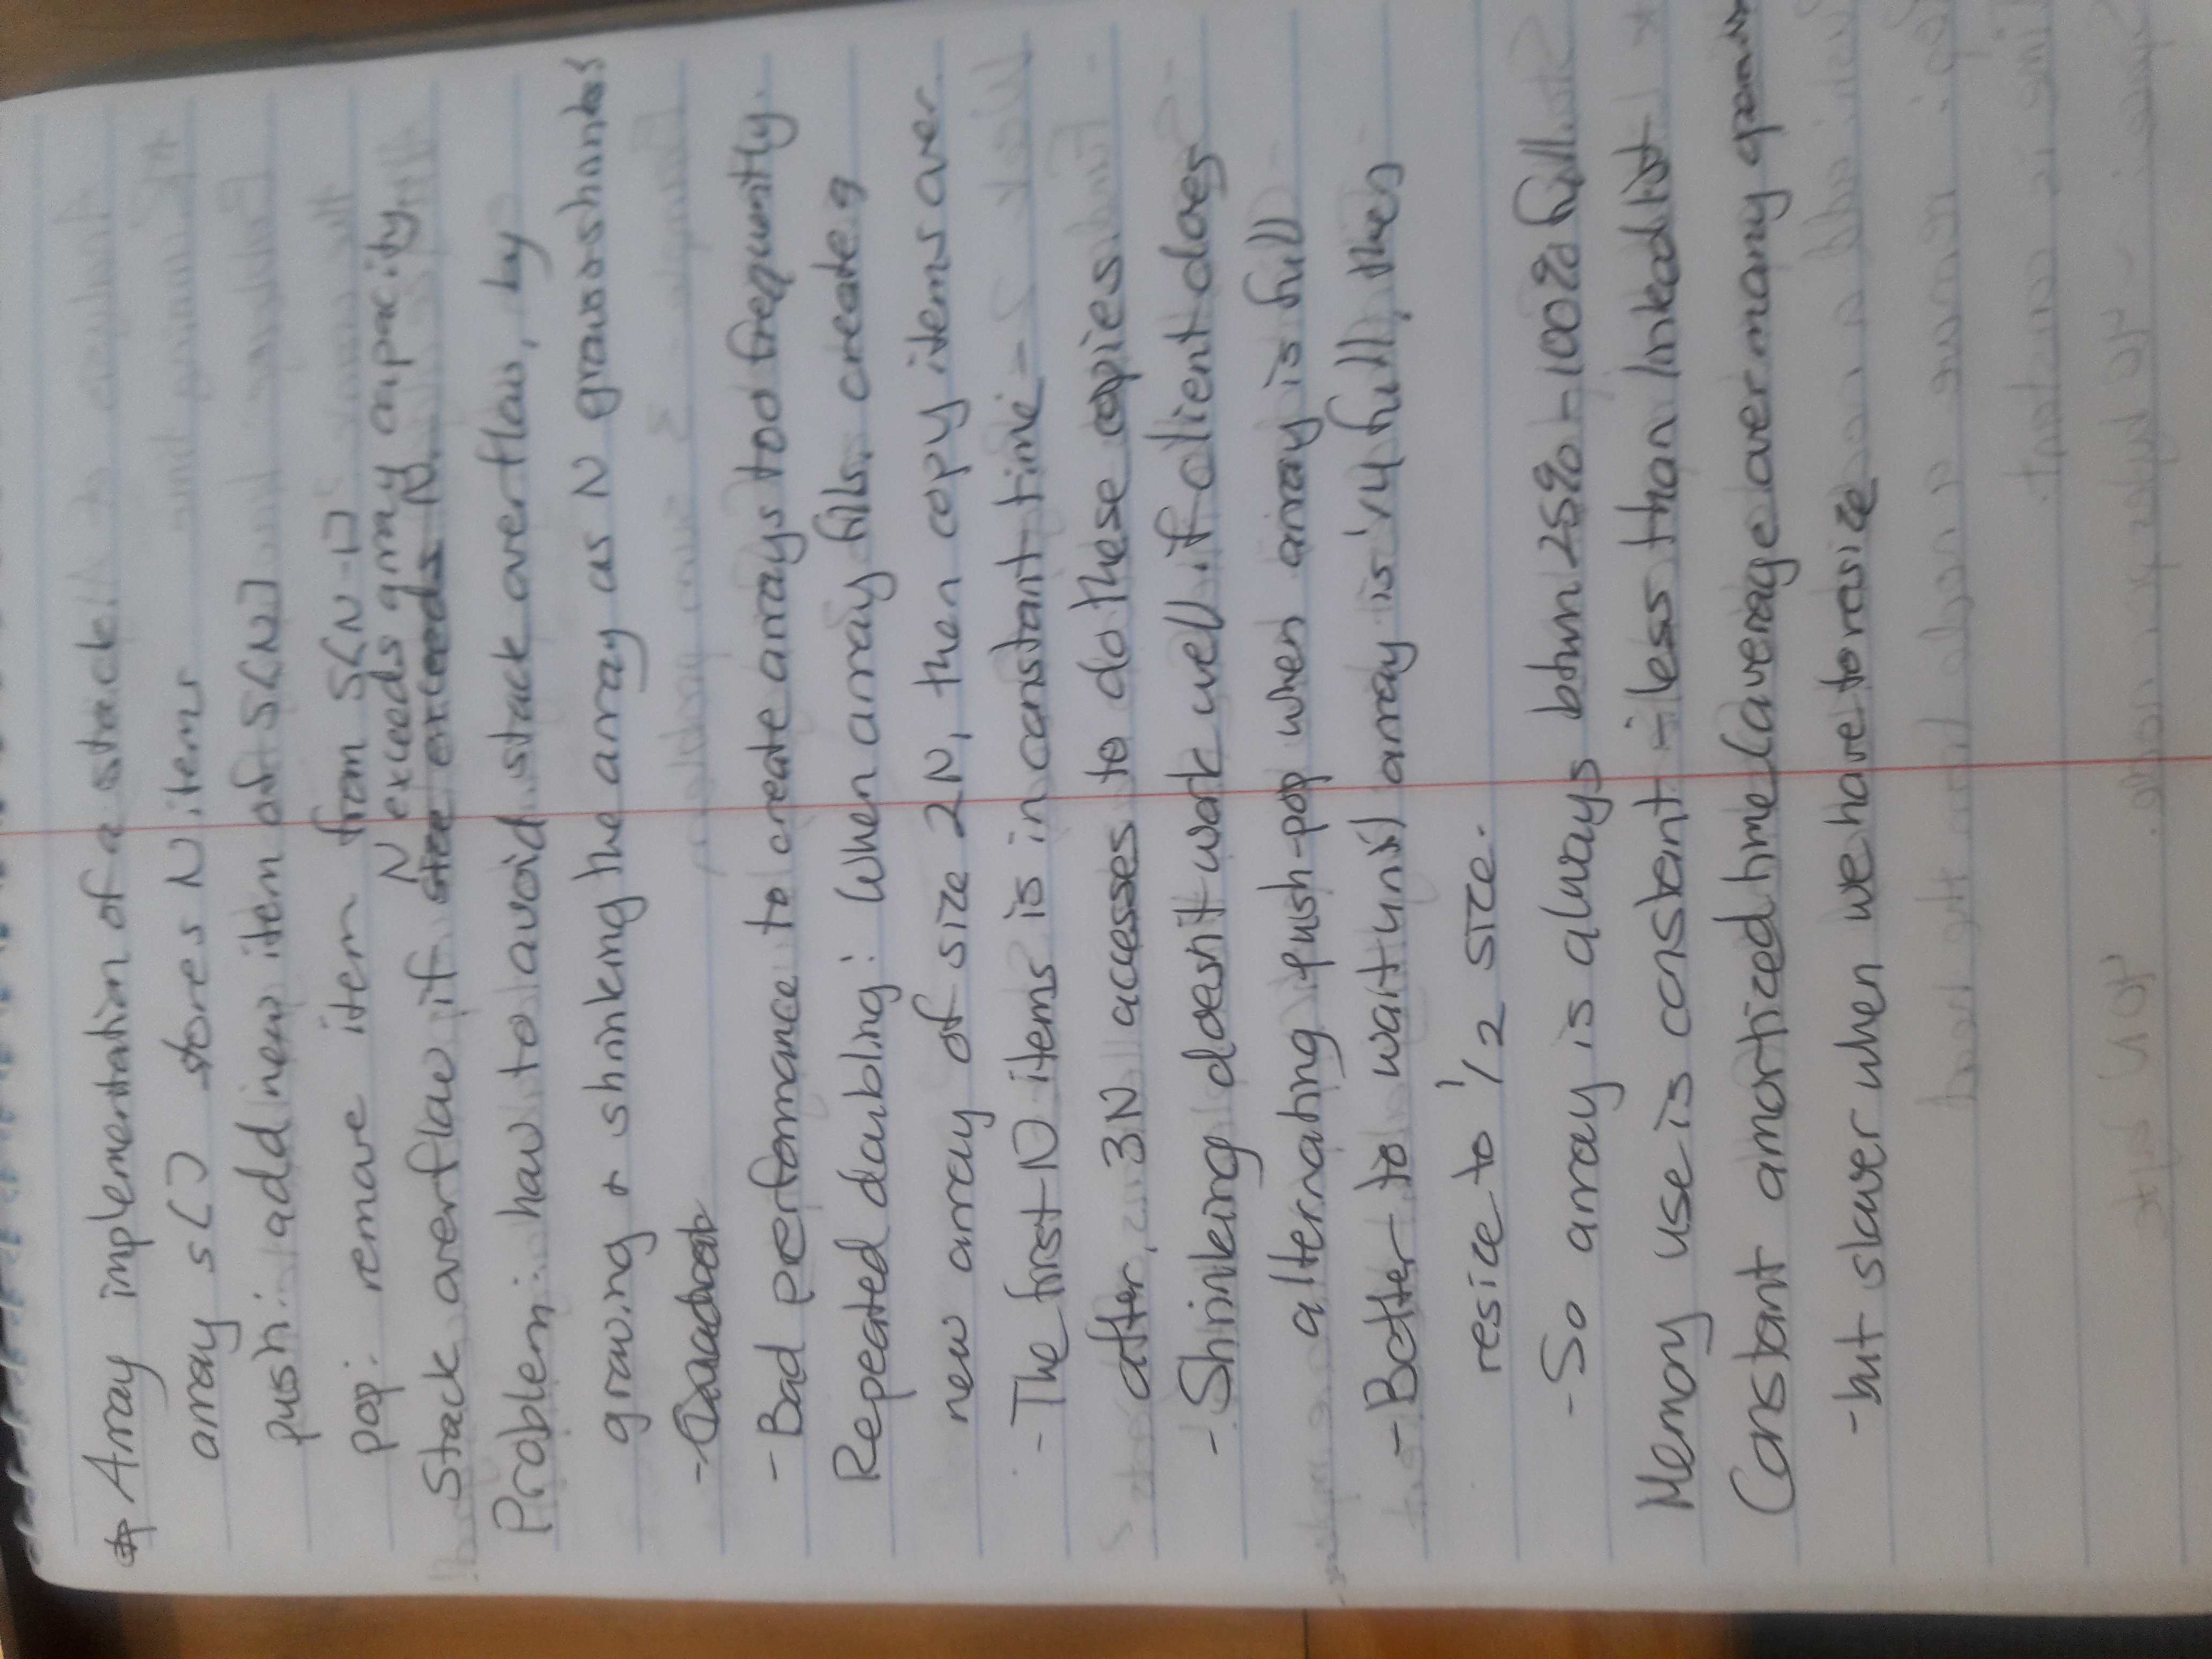 * Array implementation of a stack.
array s[] stores N items
push: add new item at S[N]
pop: remove item from S[N-1]
N exceeds array capacity.
Stack overflow if size exceeds N.
Problem: how to avoid stack overflow, by
growing & shrinking the array as N grows & shrinks?
- Quadrat
- Bad performance to create arrays too frequently.
Repeated doubling: When array fills, create a
new array of size 2N, then copy items over.
- The first N items is in constant time -
after, 3N accesses to do these copies.
- Shrinking doesn't work well if client does
alternating push-pop when array is full
- Better to wait until array is 1/4 full, then
resize to 1/2 size.
- So array is always btwn 25% - 100% full.
Memory use is constant - less than linked list
Constant amortized time (average over many
- but slower when we have to resize